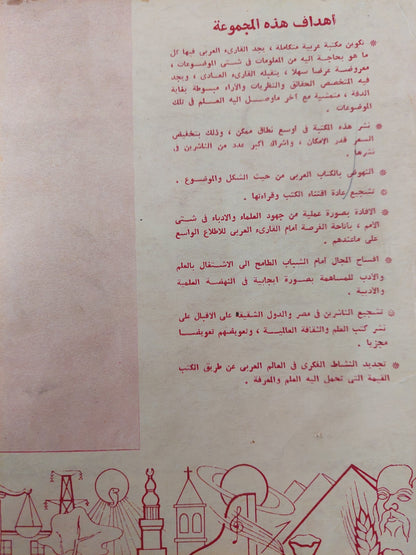 أهداف هذه المجموعة
* تكوين مكتبة عربية متكاملة ، يجد القارىء العربى فيها كل
ما هو بحاجة اليه من المعلومات فى شتى الموضوعات ،
معروضة عرضا سهلا ، يتقبله القارىء العادى ، ويجد
فيه المتخصص الحقائق والنظريات والآراء مبسوطة بغاية
الدقة ، متمشية مع آخر ماوصل اليه العلم فى تلك
الموضوعات .
* نشر هذه المكتبة فى أوسع نطاق ممكن ، وذلك بتخفيض
السعر قدر الامكان ، واشراك أكبر عدد من الناشرين فى
نشرها .
* النهوض بالكتاب العربى من حيث الشكل والموضوع .
* تشجيع عادة اقتناء الكتب وقراءتها .
* الافادة بصورة عملية من جهود العلماء والادباء فى شتى
الأمم ، باتاحة الفرصة أمام القارىء العربى للاطلاع الواسع
على ماعندهم .
* افساح المجال أمام الشباب الطامح الى الاشتغال بالعلم
والأدب للمساهمة بصورة ايجابية فى النهضة العلمية
والأدبية .
* تشجيع الناشرين فى مصر والدول الشقيقة على الاقبال على
نشر كتب العلم والثقافة العالية ، وتعويضهم تعويضا
مجزيا .
* تجديد النشاط الفكرى فى العالم العربى عن طريق الكتب
القيمة التى تحمل اليه العلم والمعرفة .